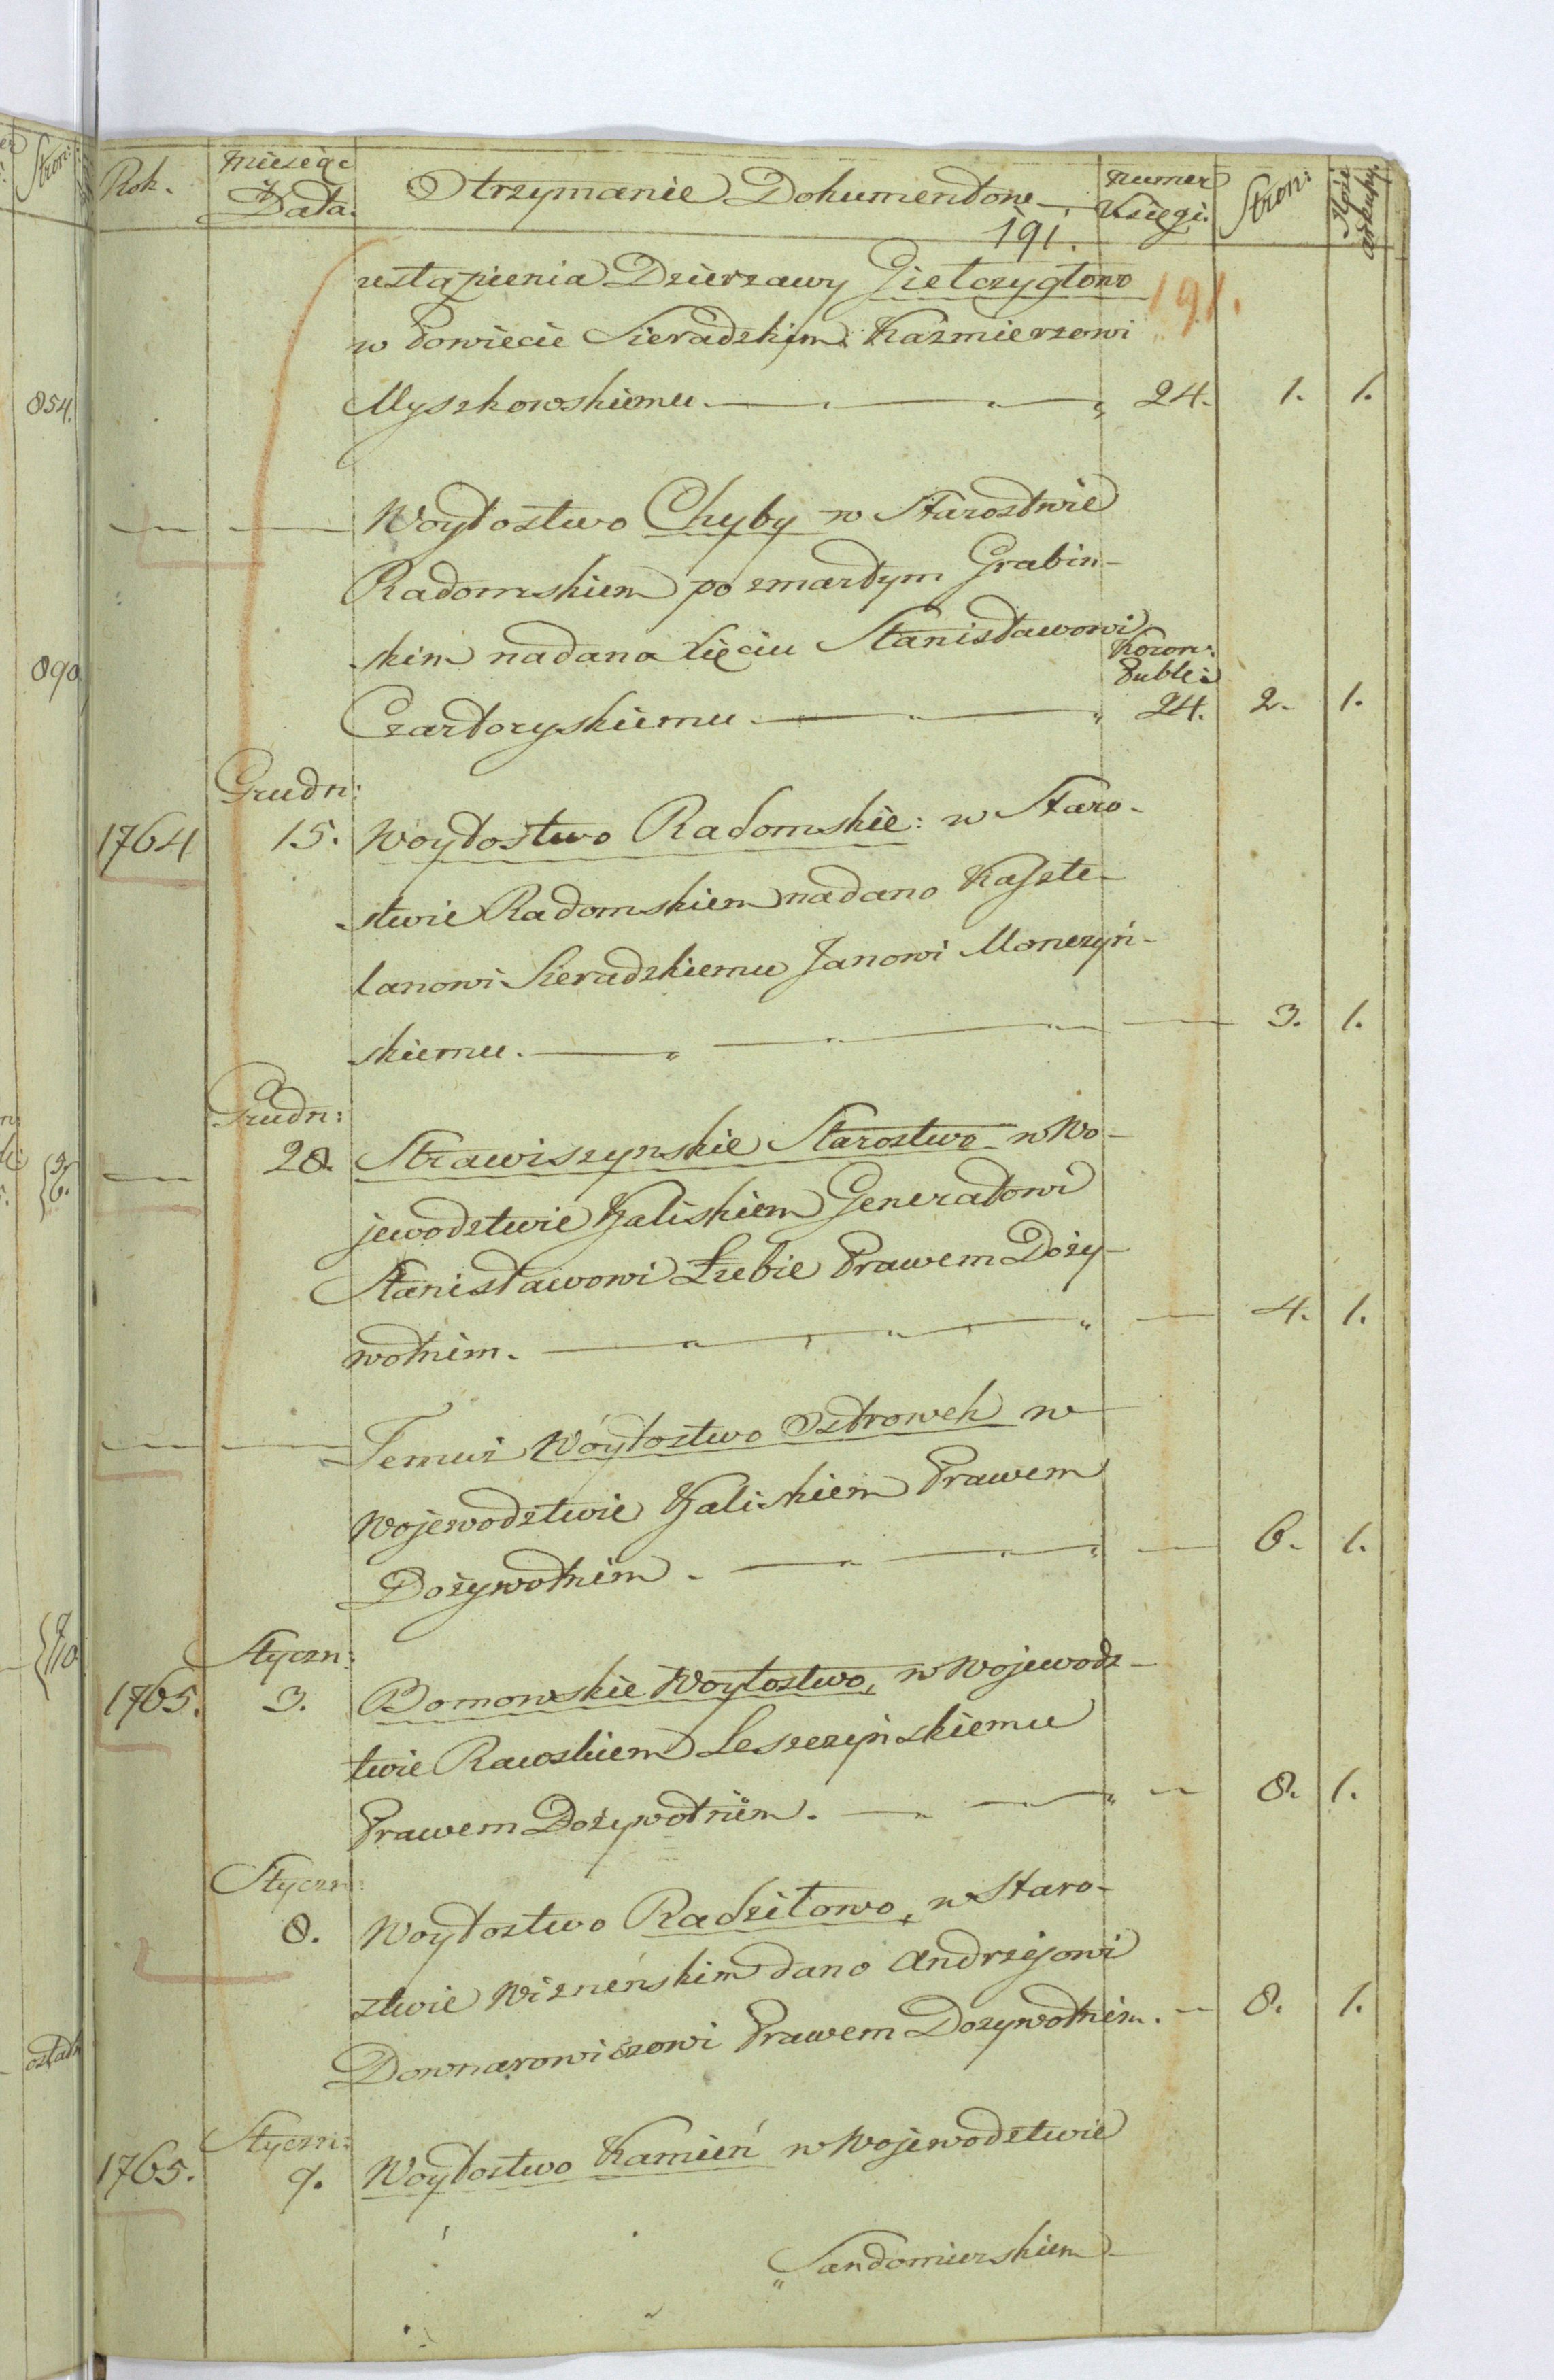 Rok.
miesiąc
Data.
Otrzymanie Dokumentow
numer
Księgi.
Stron:
arkuszy.
191.
191.
ustąpienia Dzierzawy Gielczyglowo
w Powiecie Sieradzkim Kaźmierzowi
Myszkowskiemu. 24. 1. 1.
Woytostwo Chyby w Starostwie
Radomskiem po zmarłym Grabin-
skim nadana Xięciu Stanisławowi
Koron:
Publ:
Czartoryskiemu. 24. 2. 1.
Grudn:
1764 15. Woytostwo Radomskie: w Staro-
stwie Radomskiem nadano Kaszte-
lanowi Sieradzkiemu Janowi Monczyń-
skiemu. 3. 1.
Grudn:
28. Strawiszynskie Starostwo w Wo-
jewodztwie Kaliskiem Generałowi
Stanisławowi Łubie Prawem Doży-
wotnim. 4. 1.
Temuż Wóytostwo Ostrowek w
Wojewodztwie Kaliskiem Prawem
Dożywotnim. 6. 1.
Styczn:
1765. 3. Bomowskie Woytostwo, w Wojewodz-
twie Rawskiem Leszczyńskiemu
Prawem Dożywotnim. 8. 1.
Styczn:
8. Woytostwo Radziłowo, w Staro-
stwie Wizneńskim dano Andrzejowi
Downarowiczowi Prawem Dozywotnim. 8. 1.
Styczn:
1765. 9. Woytostwo Kamień w Wojewodztwie
„Sandomierskiem
854.
890
ostatn